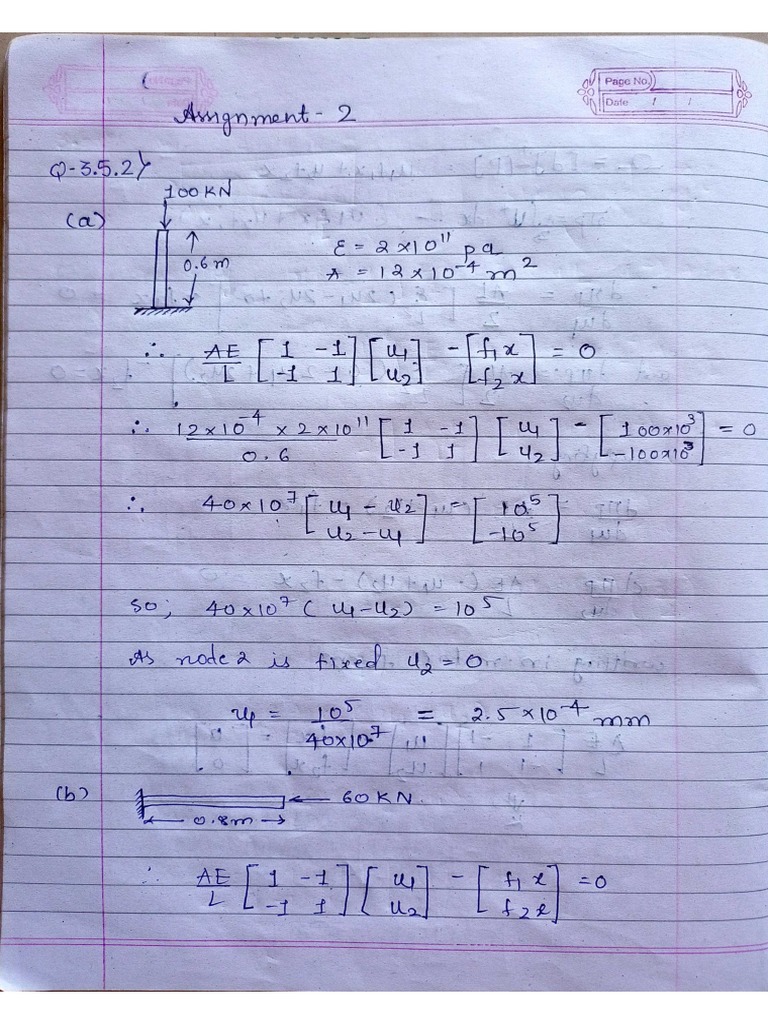 Page No.
Date / /
Assignment - 2
Q-3.5.2)
(a)
100KN
0.6m
E = 2×10¹¹ pa
A = 12×10⁻⁴ m²
∴ AE/L [1 -1; -1 1] [u₁; u₂] - [f₁x; f₂x] = 0
∴ 12×10⁻⁴ × 2×10¹¹ / 0.6 [1 -1; -1 1] [u₁; u₂] - [100×10³; -100×10³] = 0
∴ 40×10⁷ [u₁ - u₂; u₂ - u₁] = [10⁵; -10⁵]
so; 40×10⁷ (u₁-u₂) = 10⁵
As node 2 is fixed u₂ = 0
u₁ = 10⁵ / 40×10⁷ = 2.5×10⁻⁴ mm
(b)
60KN
0.8m
∴ AE/L [1 -1; -1 1] [u₁; u₂] - [f₁x; f₂x] = 0